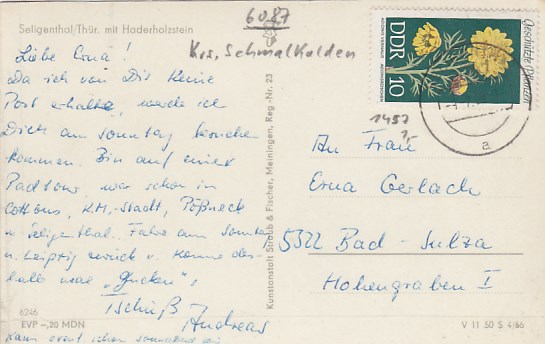 Seligenthal/Thür. mit Haderholzstein
6087
Krs. Schmalkalden
Liebe Erna!
Da ich von Dir keine
Post erhalte, werde ich
Dich am Sonntag besuchen
kommen. Bin auf einer
Radtour, war schon in
Cottbus, K.M.-Stadt, Pößneck
u. Seligenthal. Fahre am Sonntag
n. Leipzig zurück u. komme des-
halb mal „gucken“!
Tschüß
Andreas
Kann event. schon sonnabend
6246
EVP –,20 MDN
Kunstanstalt Straub & Fischer, Meiningen, Reg.-Nr. 23
Geschützte Pflanzen
DDR
10
ADONIS VERNALIS
a
1457
1,-
An Frau
Erna Gerlach
5322 Bad-Sulza
Hohengraben I
V 11 50 S 4/66